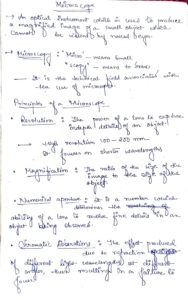 Microscope
→ An optical instrument which is used to produce
a magnified image of a small object which
cannot be viewed by naked eyes.
→ Microscopy : "Micro" - means small
"Scopy" - means to
→ It is the technical field associated with
the use of microscopes.
Principles of a Microscope
• Resolution : The power of a lens to capture
details of an object.
→ resolution 100 - 200 nm
→ It focuses on shorter wavelengths
• Magnification : The ratio of the size of the
image to the size of the
object.
• Numerical aperture : it is a number which
determines the
ability of a lens to resolve fine details in an
object being observed.
• Chromatic Aberrations : The effect produced
due to refraction
of different wavelengths at different
angles, resulting in a failure to
focus